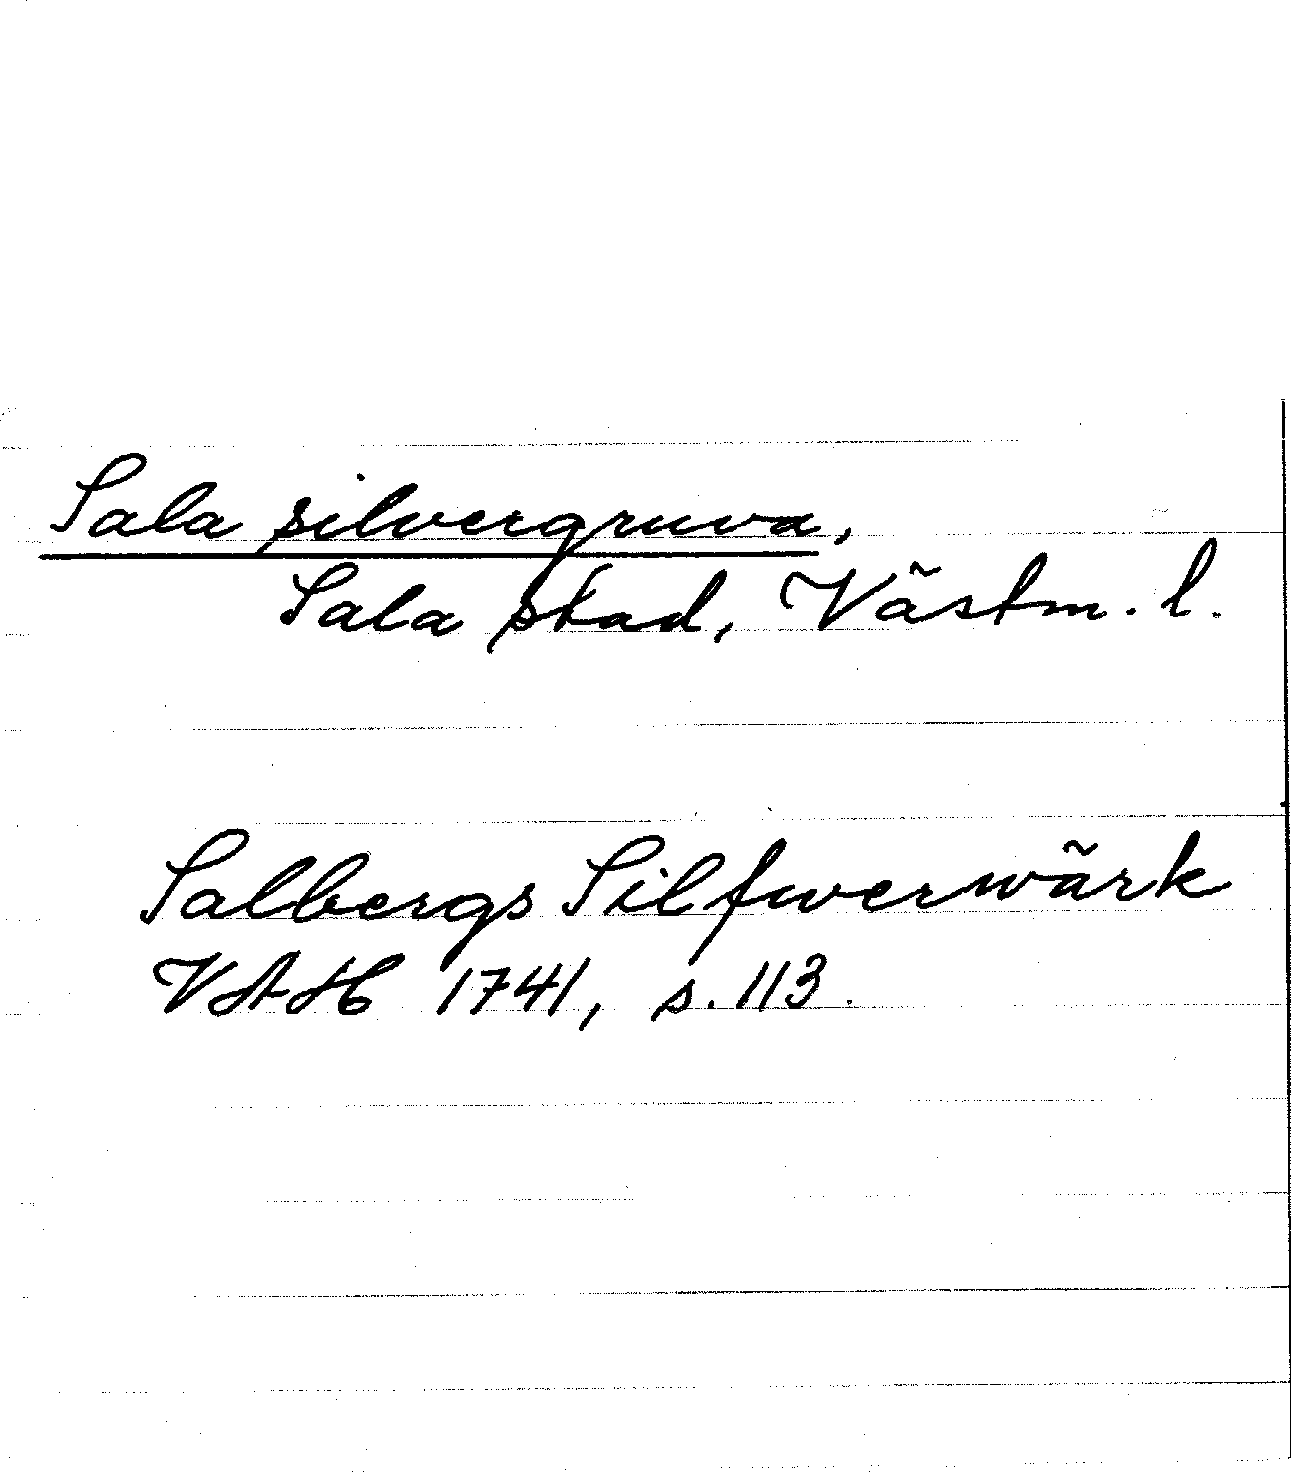 Sala silvergruva,
Sala stad, Västm. l.
Salbergs Silfwerwärk
VAH 1741, s. 113.